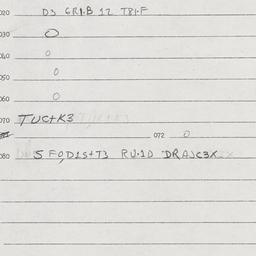 020 D3 GRI.B 12 T81.F
030 O
040 O
050 O
060 O
070 TUC+K3
072 O
080 5 FO,D1S+T3 RU.1D DRAJC3X